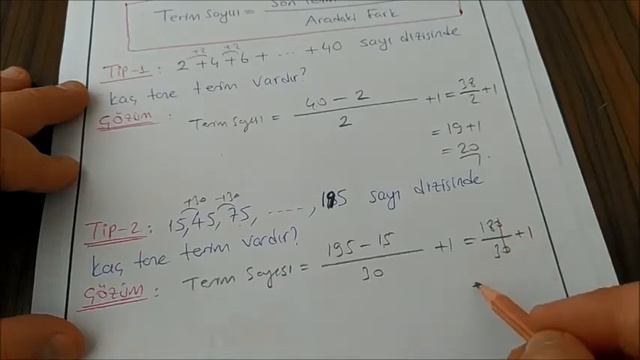 Terim Sayısı = Son
Aradaki Fark
+2 +2
Tip-1: 2+4+6+ ... +40 sayı dizisinde
kaç tane terim vardır?
Çözüm: Terim Sayısı = 40 - 2 / 2 + 1 = 38 / 2 + 1
= 19 + 1
= 20
+30 +30
Tip-2: 15, 45, 75, ....., 195 sayı dizisinde
kaç tane terim vardır?
Çözüm: Terim Sayısı = 195 - 15 / 30 + 1 = 180 / 30 + 1